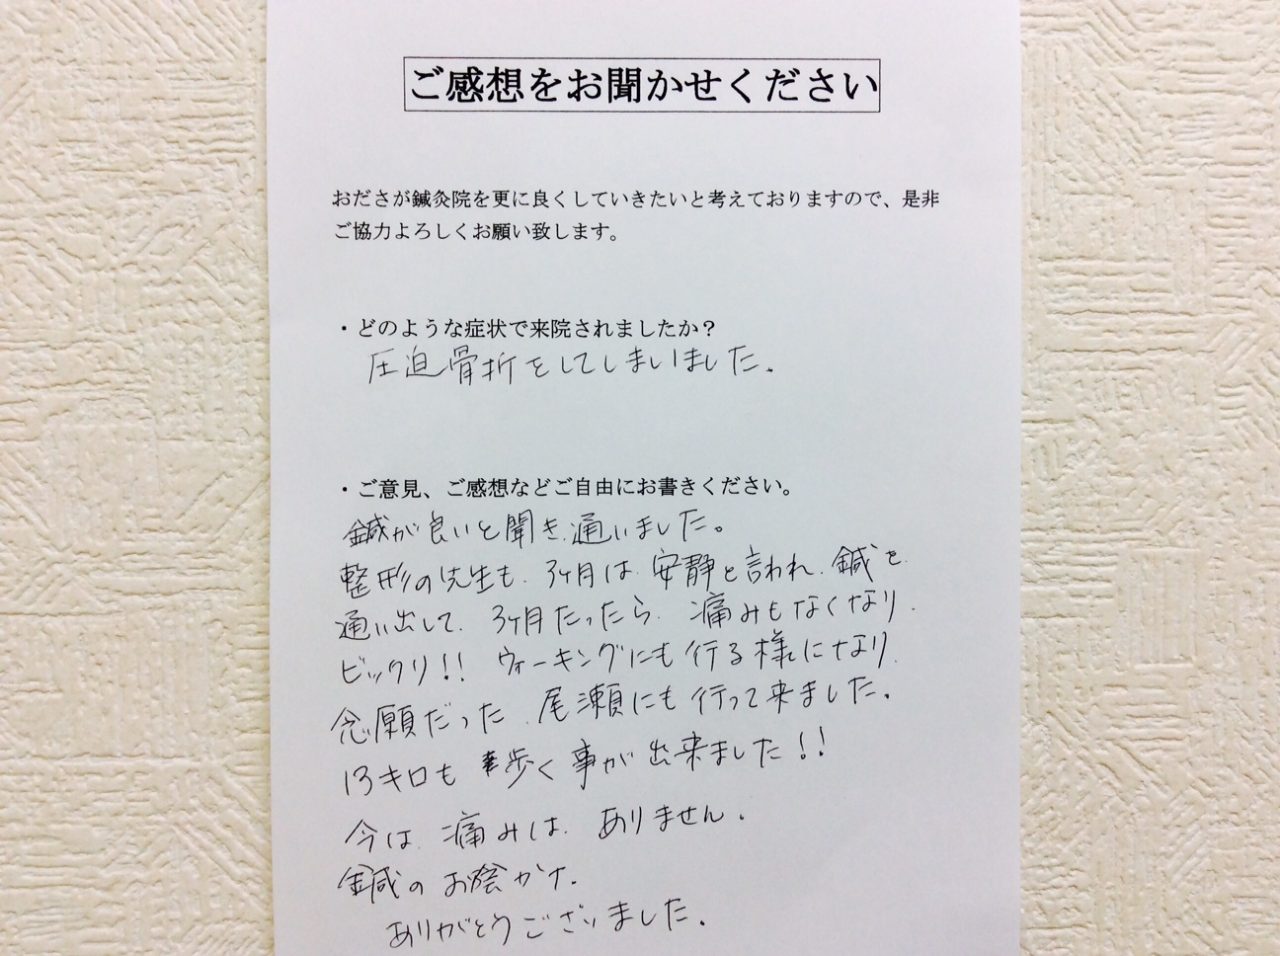 ご感想をお聞かせください
おださが鍼灸院を更に良くしていきたいと考えておりますので、是非
ご協力よろしくお願い致します。
・どのような症状で来院されましたか？
圧迫骨折をしてしまいました。
・ご意見、ご感想などご自由にお書きください。
鍼が良いと聞き、通いました。
整形の先生も、3ヶ月は、安静と言われ、鍼を
通い出して、3ヶ月たったら、痛みもなくなり、
ビックリ!! ウォーキングにも行る様になり、
念願だった、尾瀬にも行って来ました。
13キロも 歩く事が出来ました!!
今は、痛みは、ありません。
鍼のお陰かナ。
ありがとうございました。